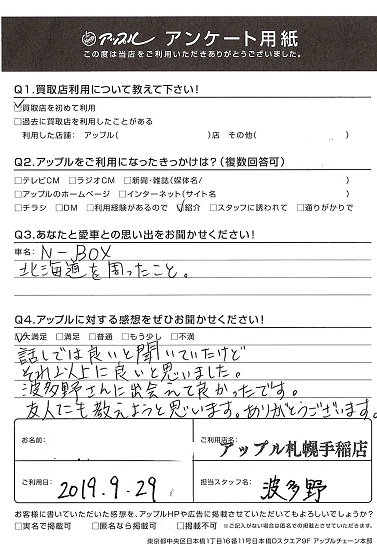 アップル アンケート用紙
この度は当店をご利用いただきありがとうございました。
Q1.買取店利用について教えて下さい!
☑買取店を初めて利用
□過去に買取店を利用したことがある
利用した店舗: アップル( )店 その他( )
Q2.アップルをご利用になったきっかけは?(複数回答可)
□テレビCM □ラジオCM □新聞・雑誌(媒体名/ )
□アップルのホームページ □インターネット(サイト名 )
□チラシ □DM □利用経験があるので ☑紹介 □スタッフに誘われて □通りがかりで
Q3.あなたと愛車との思い出をお聞かせください!
車名: N-BOX
北海道を周ったこと。
Q4.アップルに対する感想をぜひお聞かせください!
☑大満足 □満足 □普通 □もう少し □不満
話しでは良いと聞いていたけど
それ以上に良いと思いました。
波多野さんに出会えて良かったです。
友人にも教えようと思います。ありがとうございます。
お名前: ご利用店名:
アップル札幌手稲店
ご利用日: 2019.9.29 担当スタッフ名: 波多野
お客様に書いていただいた感想を、アップルHPや広告に掲載させていただいてもよろしいでしょうか?
□実名で掲載可 □匿名なら掲載可 □掲載不可 ※ご記入がない場合は匿名での掲載とさせていただきます。
東京都中央区日本橋1丁目16番11号日本橋Dスクエア9F アップルチェーン本部